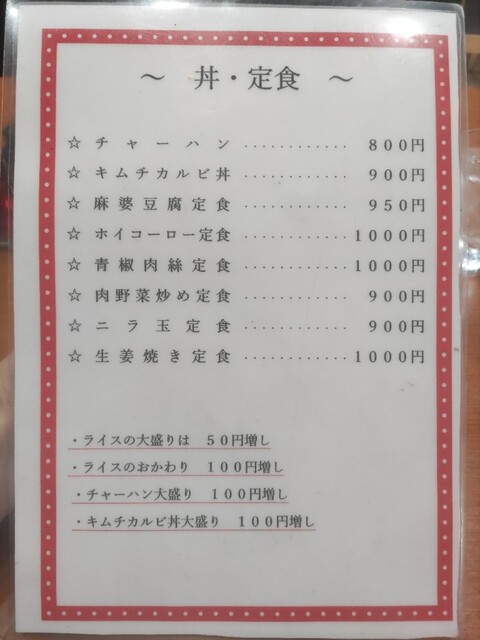 ～ 丼・定食 ～
☆ チャーハン ............ 800円
☆ キムチカルビ丼 ............ 900円
☆ 麻婆豆腐定食 ............ 950円
☆ ホイコーロー定食 ............ 1000円
☆ 青椒肉絲定食 ............ 1000円
☆ 肉野菜炒め定食 ............ 900円
☆ ニラ玉定食 ............ 900円
☆ 生姜焼き定食 ............ 1000円
・ライスの大盛りは 50円増し
・ライスのおかわり 100円増し
・チャーハン大盛り 100円増し
・キムチカルビ丼大盛り 100円増し